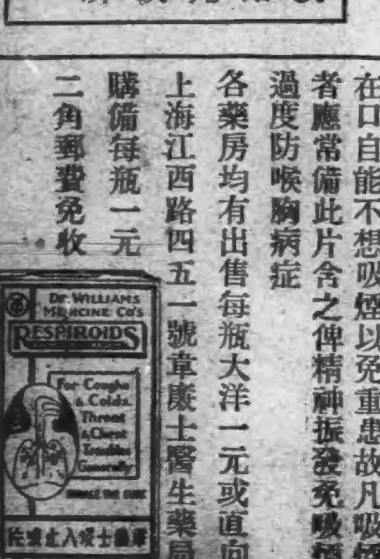 在口自能不想吸煙以免重患故凡吸
者應常備此片含之俾精神振發免吸
過度防喉胸病症
各藥房均有出售每瓶大洋一元或直向
上海江西路四五一號韋廉士醫生藥局
購備每瓶一元
二角郵費免收
DR. WILLIAMS
MEDICINE CO'S
RESPIROIDS
For Coughs
& Colds.
Throat
& Chest
Troubles
Generally